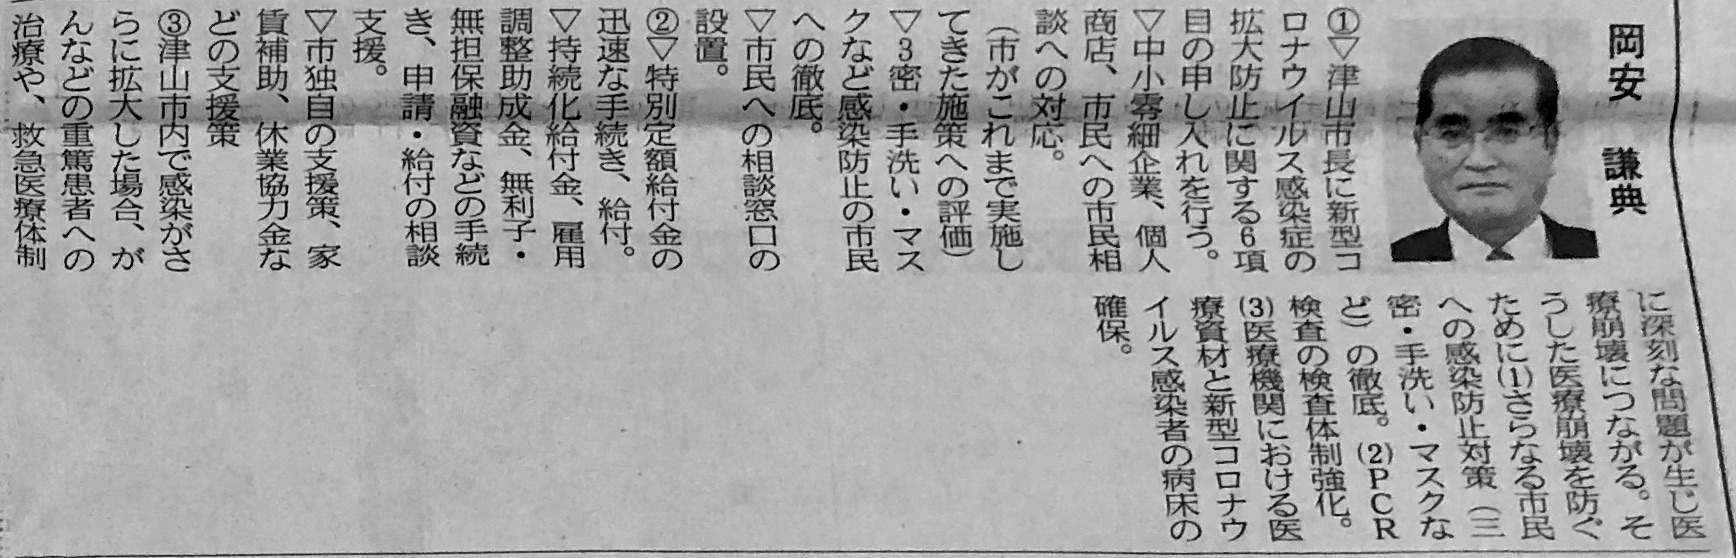 岡安 謙典
①▽津山市長に新型コ
ロナウイルス感染症の
拡大防止に関する6項
目の申し入れを行う。
▽中小零細企業、個人
商店、市民への市民相
談への対応。
（市がこれまで実施し
てきた施策への評価）
▽3密・手洗い・マス
クなど感染防止の市民
への徹底。
▽市民への相談窓口の
設置。
②▽特別定額給付金の
迅速な手続き、給付。
▽持続化給付金、雇用
調整助成金、無利子・
無担保融資などの手続
き、申請・給付の相談
支援。
▽市独自の支援策、家
賃補助、休業協力金な
どの支援策
③津山市内で感染がさ
らに拡大した場合、が
んなどの重篤患者への
治療や、救急医療体制
に深刻な問題が生じ医
療崩壊につながる。そ
うした医療崩壊を防ぐ
ために(1)さらなる市民
への感染防止対策（三
密・手洗い・マスクな
ど）の徹底。(2)PCR
検査の検査体制強化。
(3)医療機関における医
療資材と新型コロナウ
イルス感染者の病床の
確保。